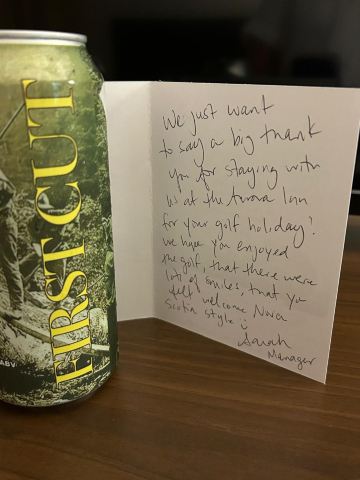 FIRST CUT
ABV
We just want
to say a big thank
you for staying with
us at the Inn
for your golf holiday!
We hope you enjoyed
the golf, that there were
lots of smiles, that you
felt welcome Nova
Scotia style :)
Sarah
Manager